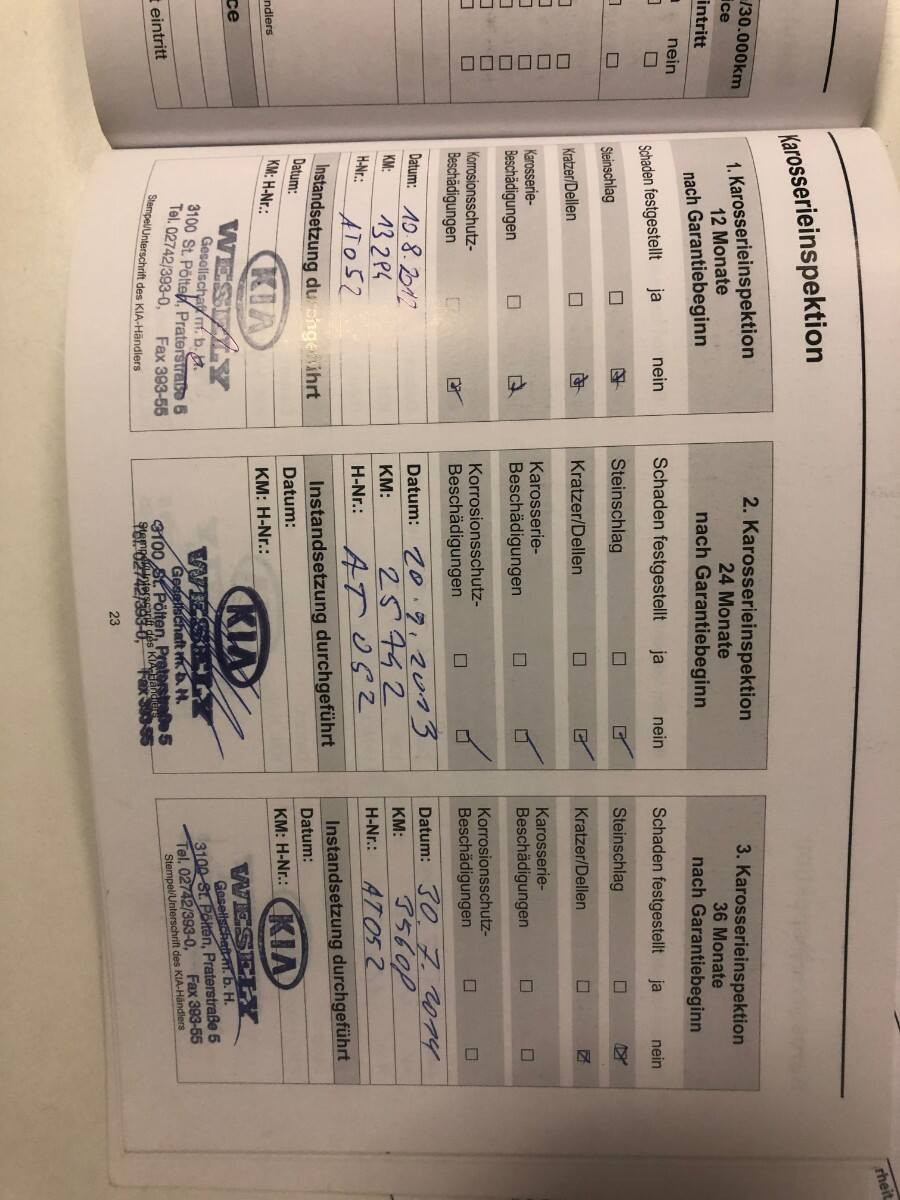 Karosserieinspektion
1. Karosserieinspektion
12 Monate
nach Garantiebeginn
Schaden festgestellt ja nein
Steinschlag
Kratzer/Dellen
Karosserie-
Beschädigungen
Korrosionsschutz-
Beschädigungen
Datum: 10.8.2012
KM: 13294
H-Nr.: AT052
Instandsetzung durchgeführt
Datum:
KM: H-Nr.:
KIA
WESELY
Gesellschaft m. b. H.
3100 St. Pölten, Praterstraße 5
Tel. 02742/393-0, Fax 393-55
Stempel/Unterschrift des KIA-Händlers
2. Karosserieinspektion
24 Monate
nach Garantiebeginn
Schaden festgestellt ja nein
Steinschlag
Kratzer/Dellen
Karosserie-
Beschädigungen
Korrosionsschutz-
Beschädigungen
Datum: 20.9.2013
KM: 25742
H-Nr.: AT 052
Instandsetzung durchgeführt
Datum:
KM: H-Nr.:
KIA
WESELY
Gesellschaft m. b. H.
3100 St. Pölten, Praterstraße 5
Tel. 02742/393-0, Fax 393-55
Stempel/Unterschrift des KIA-Händlers
3. Karosserieinspektion
36 Monate
nach Garantiebeginn
Schaden festgestellt ja nein
Steinschlag
Kratzer/Dellen
Karosserie-
Beschädigungen
Korrosionsschutz-
Beschädigungen
Datum: 30.7.2014
KM: 39600
H-Nr.: AT052
Instandsetzung durchgeführt
Datum:
KM: H-Nr.:
KIA
WESELY
Gesellschaft m. b. H.
3100 St. Pölten, Praterstraße 5
Tel. 02742/393-0, Fax 393-55
Stempel/Unterschrift des KIA-Händlers
23
/30.000km
nein
eintritt